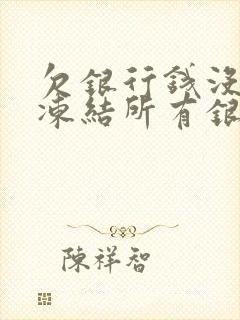 欠銀行錢沒
凍結所有銀
陳祥智